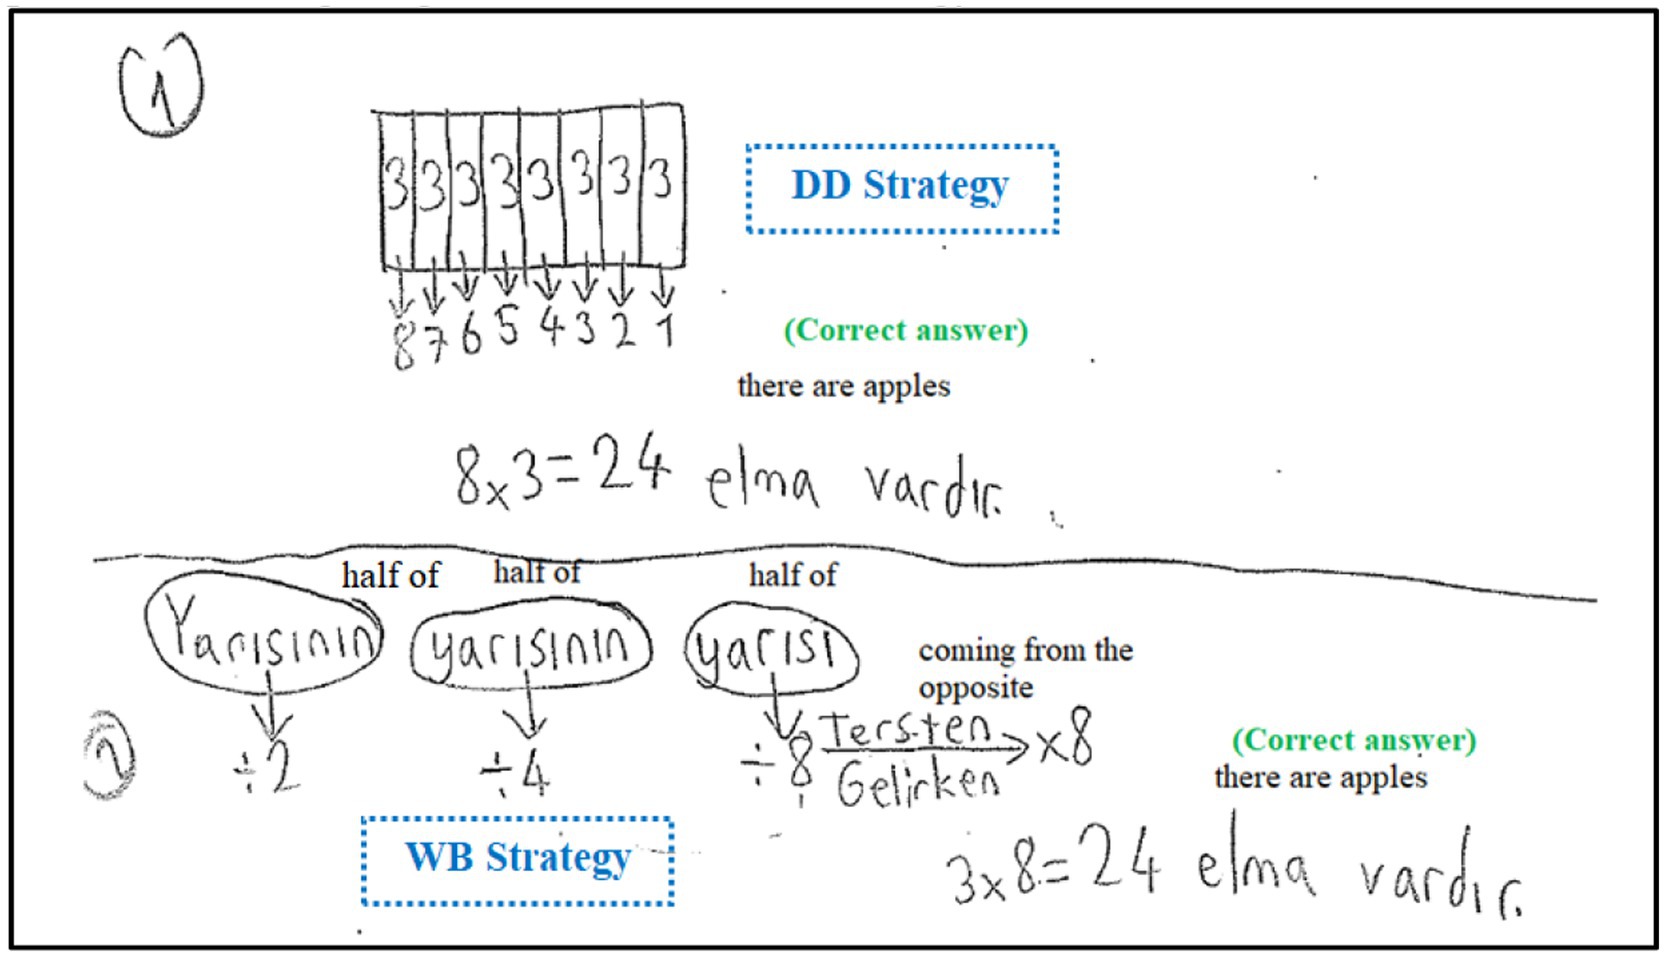 1
3 3 3 3 3 3 3 3
DD Strategy
8 7 6 5 4 3 2 1
(Correct answer)
there are apples
8x3=24 elma vardır.
half of half of half of
Yarısının yarısının yarısı
coming from the
opposite
2
÷2 ÷4 ÷8 Tersten Gelirken x8
(Correct answer)
there are apples
WB Strategy
3x8=24 elma vardır.